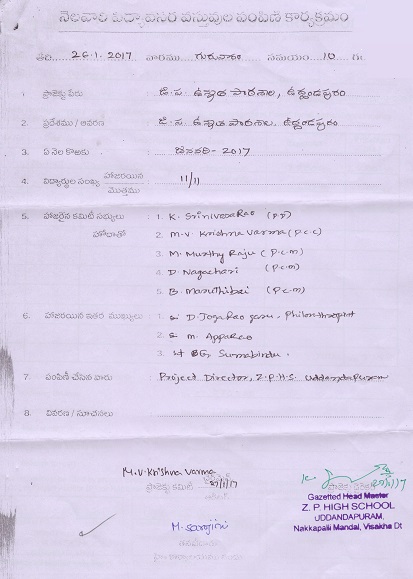 నెలవారీ విద్యావసర వస్తువుల పంపిణీ కార్యక్రమం
తేది. 26.1.2017 వారము గురువారం సమయం 10 గం
1. ప్రాజెక్టు పేరు : జి.ప. ఉన్నత పాఠశాల, ఉద్దండపురం
2. ప్రదేశము / ఆవరణ : జి.ప. ఉన్నత పాఠశాల, ఉద్దండపురం
3. ఏ నెల కొఱకు : జనవరి - 2017
4. విద్యార్థుల సంఖ్య హాజరయిన / మొత్తము : 11/11
5. హాజరైన కమిటీ సభ్యులు : 1. K. Srinivasa Rao (P.D)
హోదాతో 2. M.V. Krishna Varma (P.C.C)
3. M. Murthy Raju (P.C.M)
4. D. Nagachari (P.C.M)
5. B. Maruthibai (P.C.M)
6. హాజరయిన ఇతర ముఖ్యులు : 1. D. Joga Rao garu, Philonthropist
2. M. Apparao
3. BG.
7. పంపిణీ చేసిన వారు : Project Director, Z.P.H.S. Uddandapuram
8. వివరణ / సూచనలు :
M.V. Krishna Varma
ప్రాజెక్టు కమిటీ 27/1/17
M. Sarojini
27/1/17
Gazetted Head Master
Z. P. HIGH SCHOOL
UDDANDAPURAM,
Nakkapalli Mandal, Visakha Dt